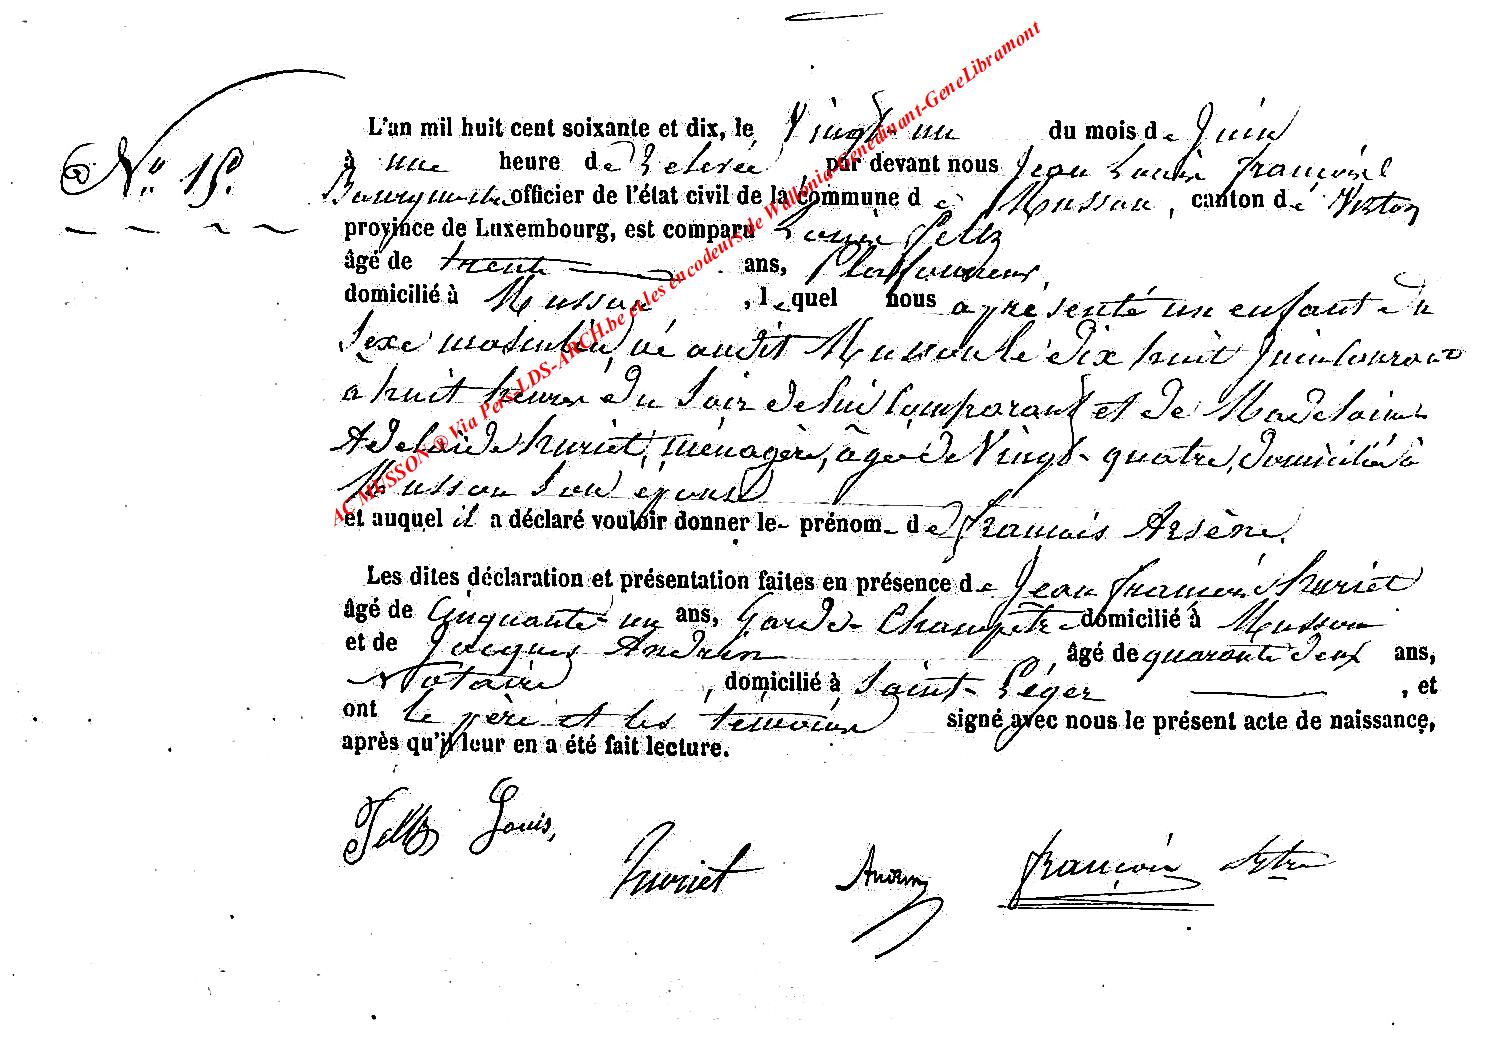 AC MUSSON ® Via Pers.LDS-ARCH.be et les encodeurs de Wallonia-Genedinant-GeneLibramont
N° 15.
L'an mil huit cent soixante et dix, le Vingt-un du mois de Juin
à une heure de Relevée par devant nous Jean Louis François
Bourgmestre officier de l'état civil de la commune de Musson, canton de Virton
province de Luxembourg, est comparu Louis Feltz
âgé de trente ans, Plafonneur,
domicilié à Musson, lequel nous a présenté un enfant du
Sexe masculin, né audit Musson le dix huit Juin Courant
a huit heures du Soir de lui Comparant et de Madelaine
Adelaïde huriet, ménagère, âgée de Vingt-quatre, domiciliée à
Musson Son épouse
et auquel il a déclaré vouloir donner le prénom de françois Arsène.
Les dites déclaration et présentation faites en présence de Jean françois huriet
âgé de Cinquante-un ans, Garde-Champêtre domicilié à Musson
et de Jacques Andrin âgé de quarante deux ans,
Notaire, domicilié à Saint-Léger, et
ont le père et les témoins signé avec nous le présent acte de naissance,
après qu'il leur en a été fait lecture.
Feltz Louis,
huriet Andrin françois